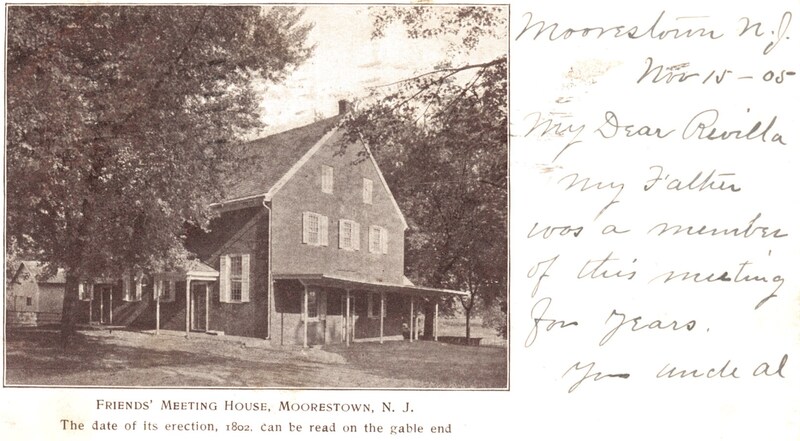 Moorestown N. J.
Nov 15 - 05
My Dear Revilla
My Father
was a member
of this meeting
for years.
You uncle al
FRIENDS' MEETING HOUSE, MOORESTOWN, N. J.
The date of its erection, 1802, can be read on the gable end